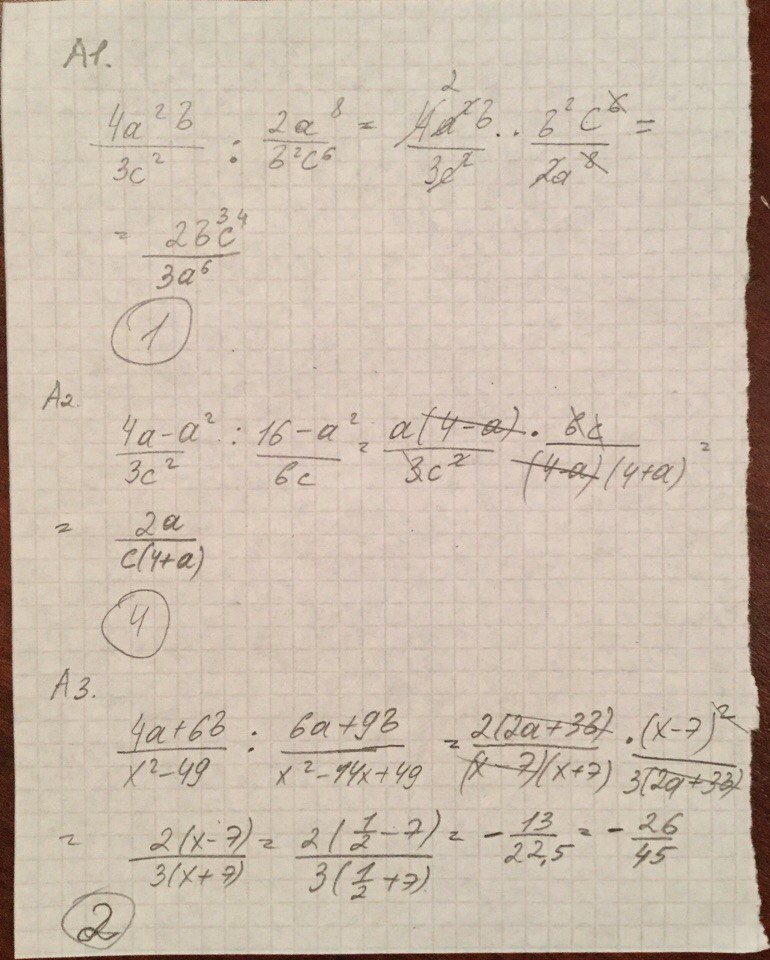 A1.
4a²b/3c² : 2a⁸/b²c⁶ = 4a²b/3c² · b²c⁶/2a⁸ =
= 2b³c⁴/3a⁶
1
A2.
4a-a²/3c² : 16-a²/6c = a(4-a)/3c² · 6c/(4-a)(4+a) =
= 2a/c(4+a)
4
A3.
4a+6b/x²-49 : 6a+9b/x²-14x+49 = 2(2a+3b)/(x-7)(x+7) · (x-7)²/3(2a+3b)
= 2(x-7)/3(x+7) = 2(1/2-7)/3(1/2+7) = -13/22,5 = -26/45
2